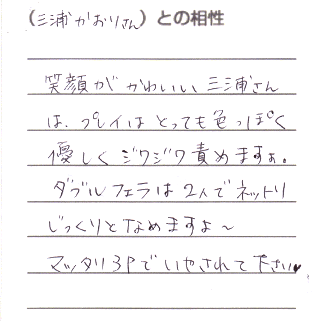 （三浦かおりさん）との相性
笑顔がかわいい三浦さん
は、プレイはとっても色っぽく
優しくジワジワ責めますぁ。
ダブルフェラは2人でネットリ
じっくりとなめますよ～
マッタリ3Pでいやされて下さい♥